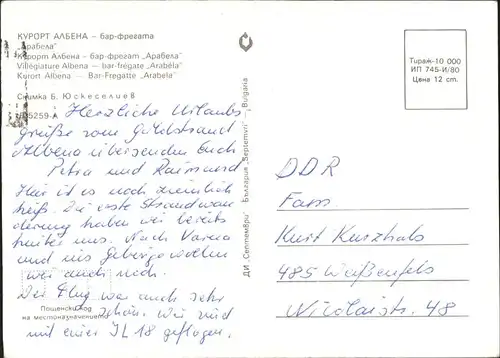 КУРОРТ АЛБЕНА – бар-фрегата
„Арабела"
Курорт Албена – бар-фрегат „Арабела"
Villégiature Albena — bar-frégate „Arabéla"
Kurort Albena — Bar-Fregatte „Arabela"
Снимка Б. Юскеселиев
5259-А
Herzliche Urlaubs
grüße vom Goldstrand
Albena übersenden Euch
Petra und Raimund
Hier ist es noch ziemlich
heiß. Die erste Strandwan
derung haben wir bereits
hinter uns. Nach Varna
und ins Gebirge wollen
wir auch noch.
Der Flug war auch sehr
schön. Wir sind
mit einer IL 18 geflogen.
Пощенски код
на местоназначението
ДИ „Септември" — България „Septemvri" — Bulgaria
Тираж-10 000
ИП 745-И/80
Цена 12 ст.
DDR
Fam.
Kurt Kurzhals
485 Weißenfels
Nicolaistr. 48